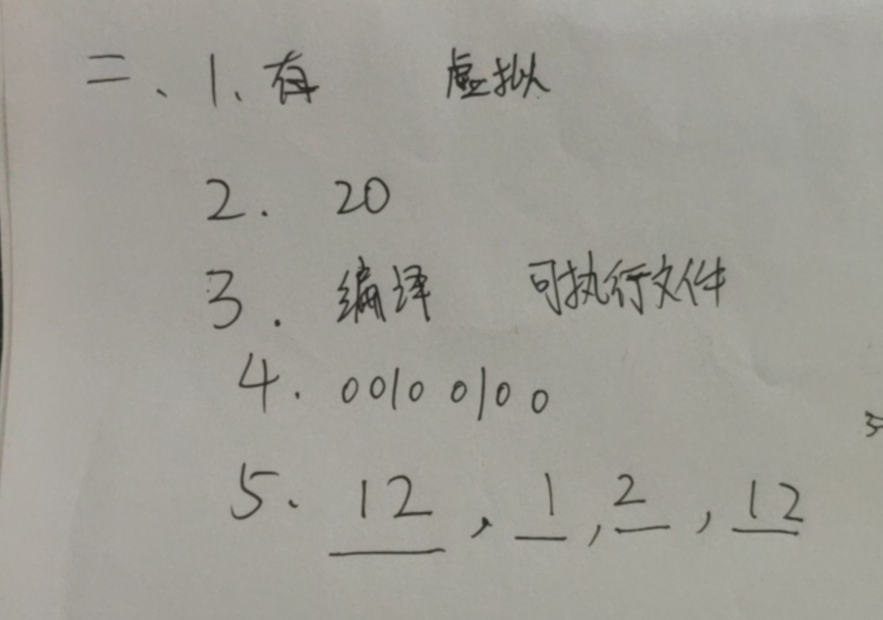 二、1、存 虚拟
2. 20
3. 编译 可执行文件
4. 0010 0100
5、 12 , 1 , 2 , 12